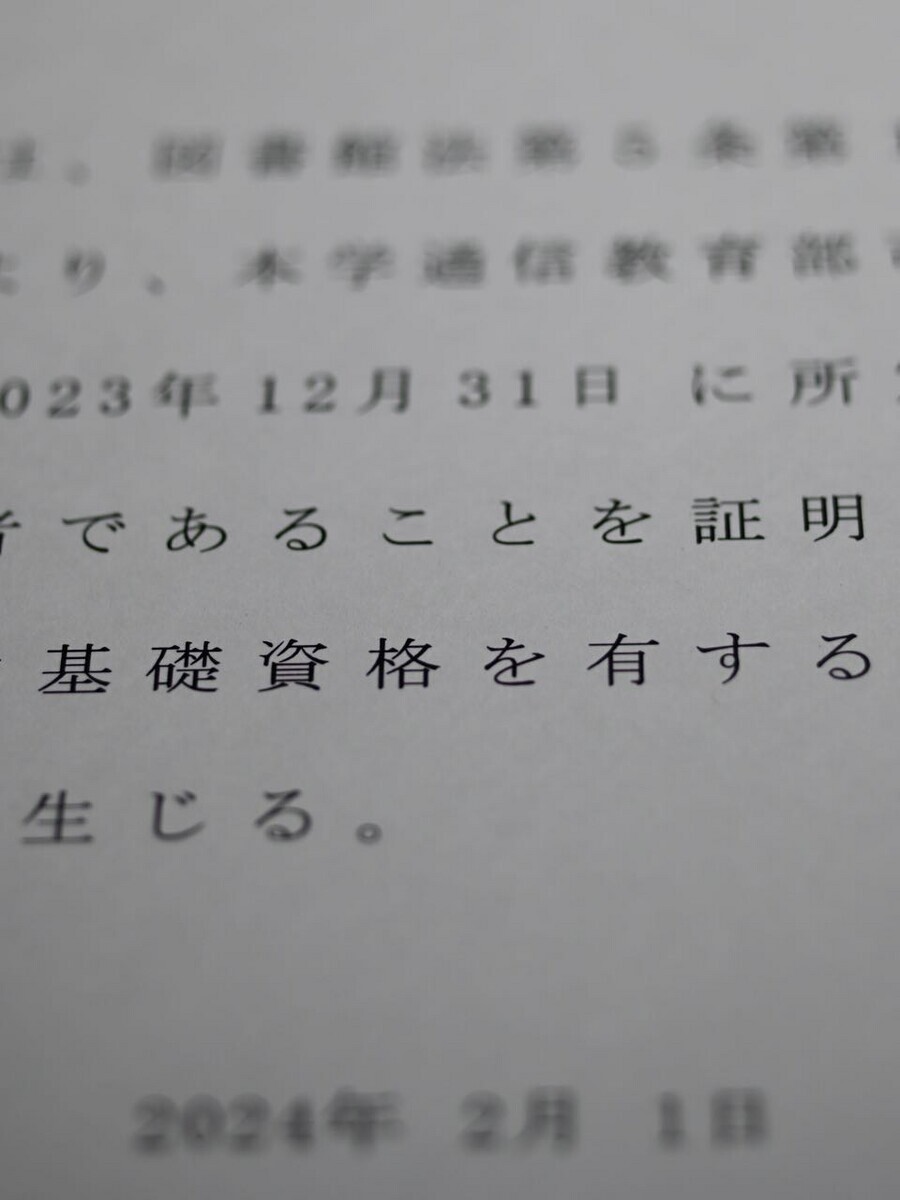 は、図書館法第5条第
より、本学通信教育部
023年12月31日に所
者であることを証明
基礎資格を有する
生じる。
2024年 2月 1日